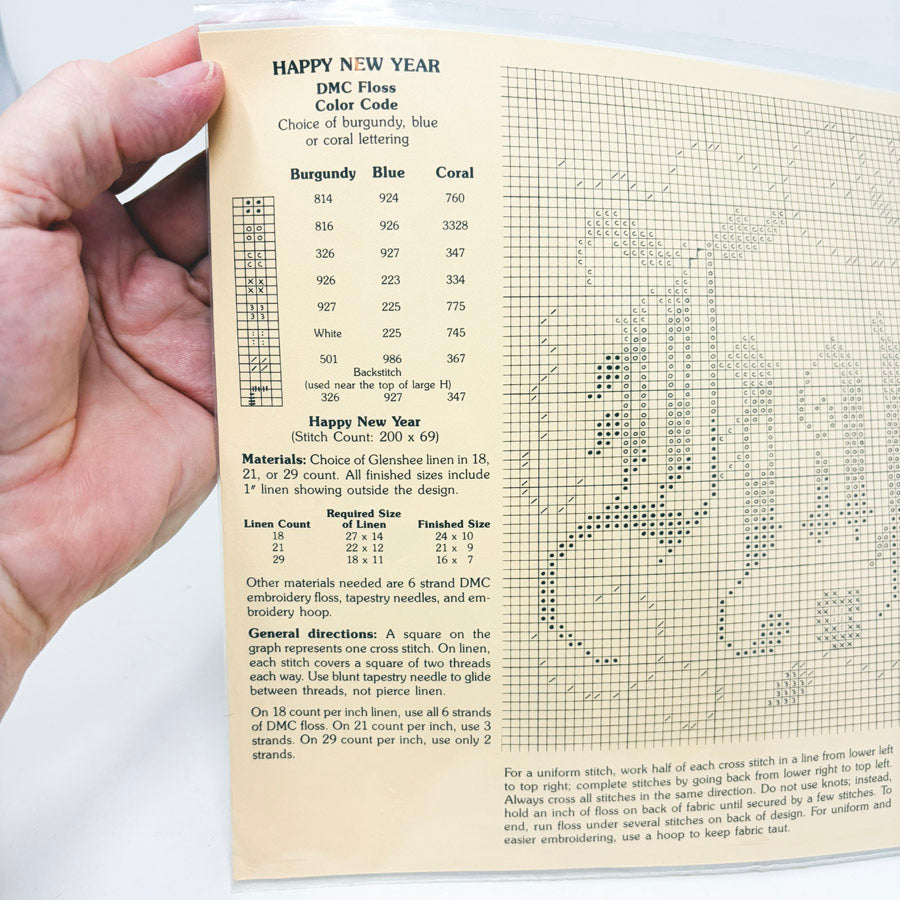 HAPPY NEW YEAR
DMC Floss
Color Code
Choice of burgundy, blue
or coral lettering
Burgundy Blue Coral
814 924 760
816 926 3328
326 927 347
926 223 334
927 225 775
White 225 745
501 986 367
Backstitch
(used near the top of large H)
326 927 347
Happy New Year
(Stitch Count: 200 x 69)
Materials: Choice of Glenshee linen in 18,
21, or 29 count. All finished sizes include
1" linen showing outside the design.
Required Size
Linen Count of Linen Finished Size
18 27 x 14 24 x 10
21 22 x 12 21 x 9
29 18 x 11 16 x 7
Other materials needed are 6 strand DMC
embroidery floss, tapestry needles, and em-
broidery hoop.
General directions: A square on the
graph represents one cross stitch. On linen,
each stitch covers a square of two threads
each way. Use blunt tapestry needle to glide
between threads, not pierce linen.
On 18 count per inch linen, use all 6 strands
of DMC floss. On 21 count per inch, use 3
strands. On 29 count per inch, use only 2
strands.
For a uniform stitch, work half of each cross stitch in a line from lower left
to top right; complete stitches by going back from lower right to top left.
Always cross all stitches in the same direction. Do not use knots; instead,
hold an inch of floss on back of fabric until secured by a few stitches. To
end, run floss under several stitches on back of design. For uniform and
easier embroidering, use a hoop to keep fabric taut.